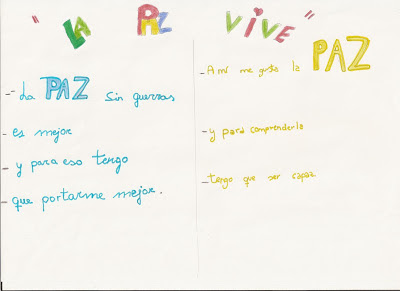 "LA PAZ VIVE"
-- La PAZ sin guerras
- es mejor
- y para eso tengo
- que portarme mejor.
- A mí me gusta la PAZ
- y para comprenderla
- tengo que ser capaz.